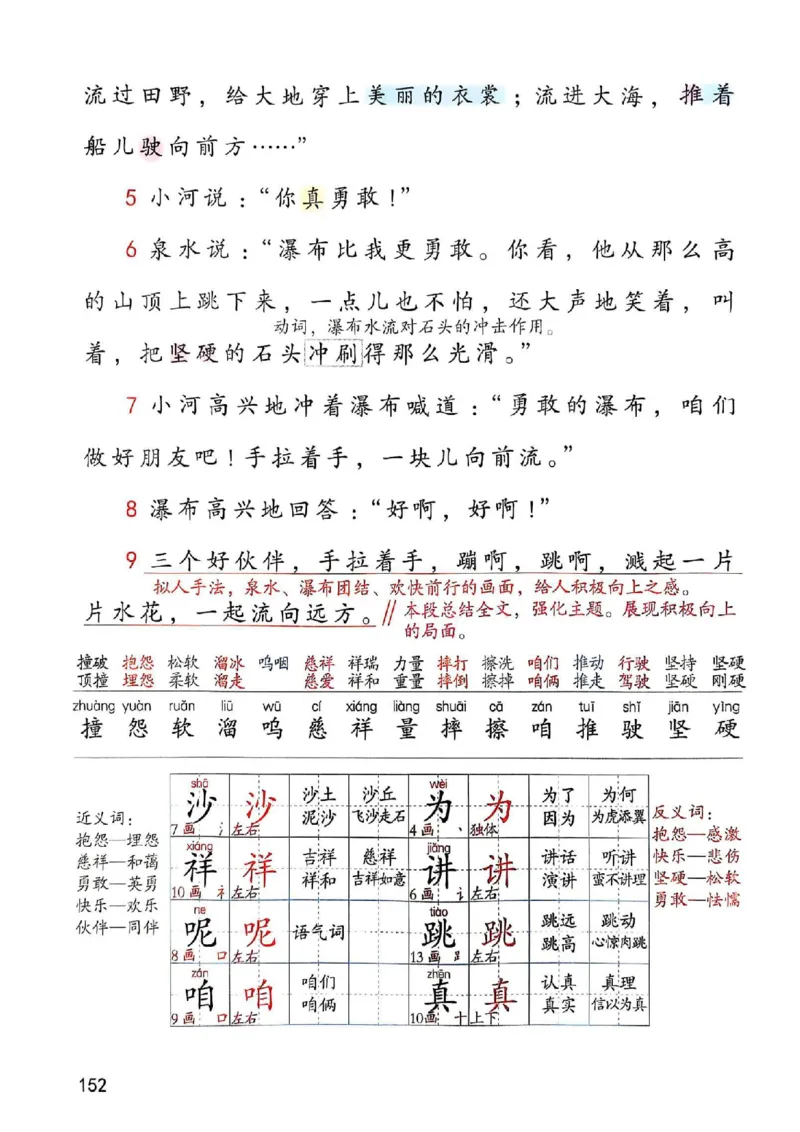 流过田野，给大地穿上美丽的衣裳；流进大海，推着
船儿驶向前方……”
5 小河说：“你真勇敢！”
6 泉水说：“瀑布比我更勇敢。你看，他从那么高
的山顶上跳下来，一点儿也不怕，还大声地笑着，叫
动词，瀑布水流对石头的冲击作用。
着，把坚硬的石头冲刷得那么光滑。”
7 小河高兴地冲着瀑布喊道：“勇敢的瀑布，咱们
做好朋友吧！手拉着手，一块儿向前流。”
8 瀑布高兴地回答：“好啊，好啊！”
9 三个好伙伴，手拉着手，蹦啊，跳啊，溅起一片
拟人手法，泉水、瀑布团结、欢快前行的画面，给人积极向上之感。
片水花，一起流向远方。∥本段总结全文，强化主题。展现积极向上
的局面。
撞破 抱怨 松软 溜冰 呜咽 慈祥 祥瑞 力量 摔打 擦洗 咱们 推动 行驶 坚持 坚硬
顶撞 埋怨 柔软 溜走 慈爱 祥和 重量 摔倒 擦掉 咱俩 推走 驾驶 坚硬 刚硬
zhuàng yuàn ruǎn liū wū cí xiáng liàng shuāi cā zán tuī shǐ jiān yìng
撞 怨 软 溜 呜 慈 祥 量 摔 擦 咱 推 驶 坚 硬
近义词：
抱怨—埋怨
慈祥—和蔼
勇敢—英勇
快乐—欢乐
伙伴—同伴
shā wèi
沙 沙 沙土 沙丘 为 为 为了 为何
泥沙 飞沙走石 因为 为虎添翼
7画 氵 左右 4画 丶 独体
xiáng jiǎng
祥 祥 吉祥 慈祥 讲 讲 讲话 听讲
祥和 吉祥如意 演讲 蛮不讲理
10画 礻 左右 6画 讠 左右
ne tiào
呢 呢 语气词 跳 跳 跳远 跳动
跳高 心惊肉跳
8画 口 左右 13画 𧾷 左右
zán zhēn
咱 咱 咱们 真 真 认真 真理
咱俩 真实 信以为真
9画 口 左右 10画 十 上下
反义词：
抱怨—感激
快乐—悲伤
坚硬—松软
勇敢—怯懦
152